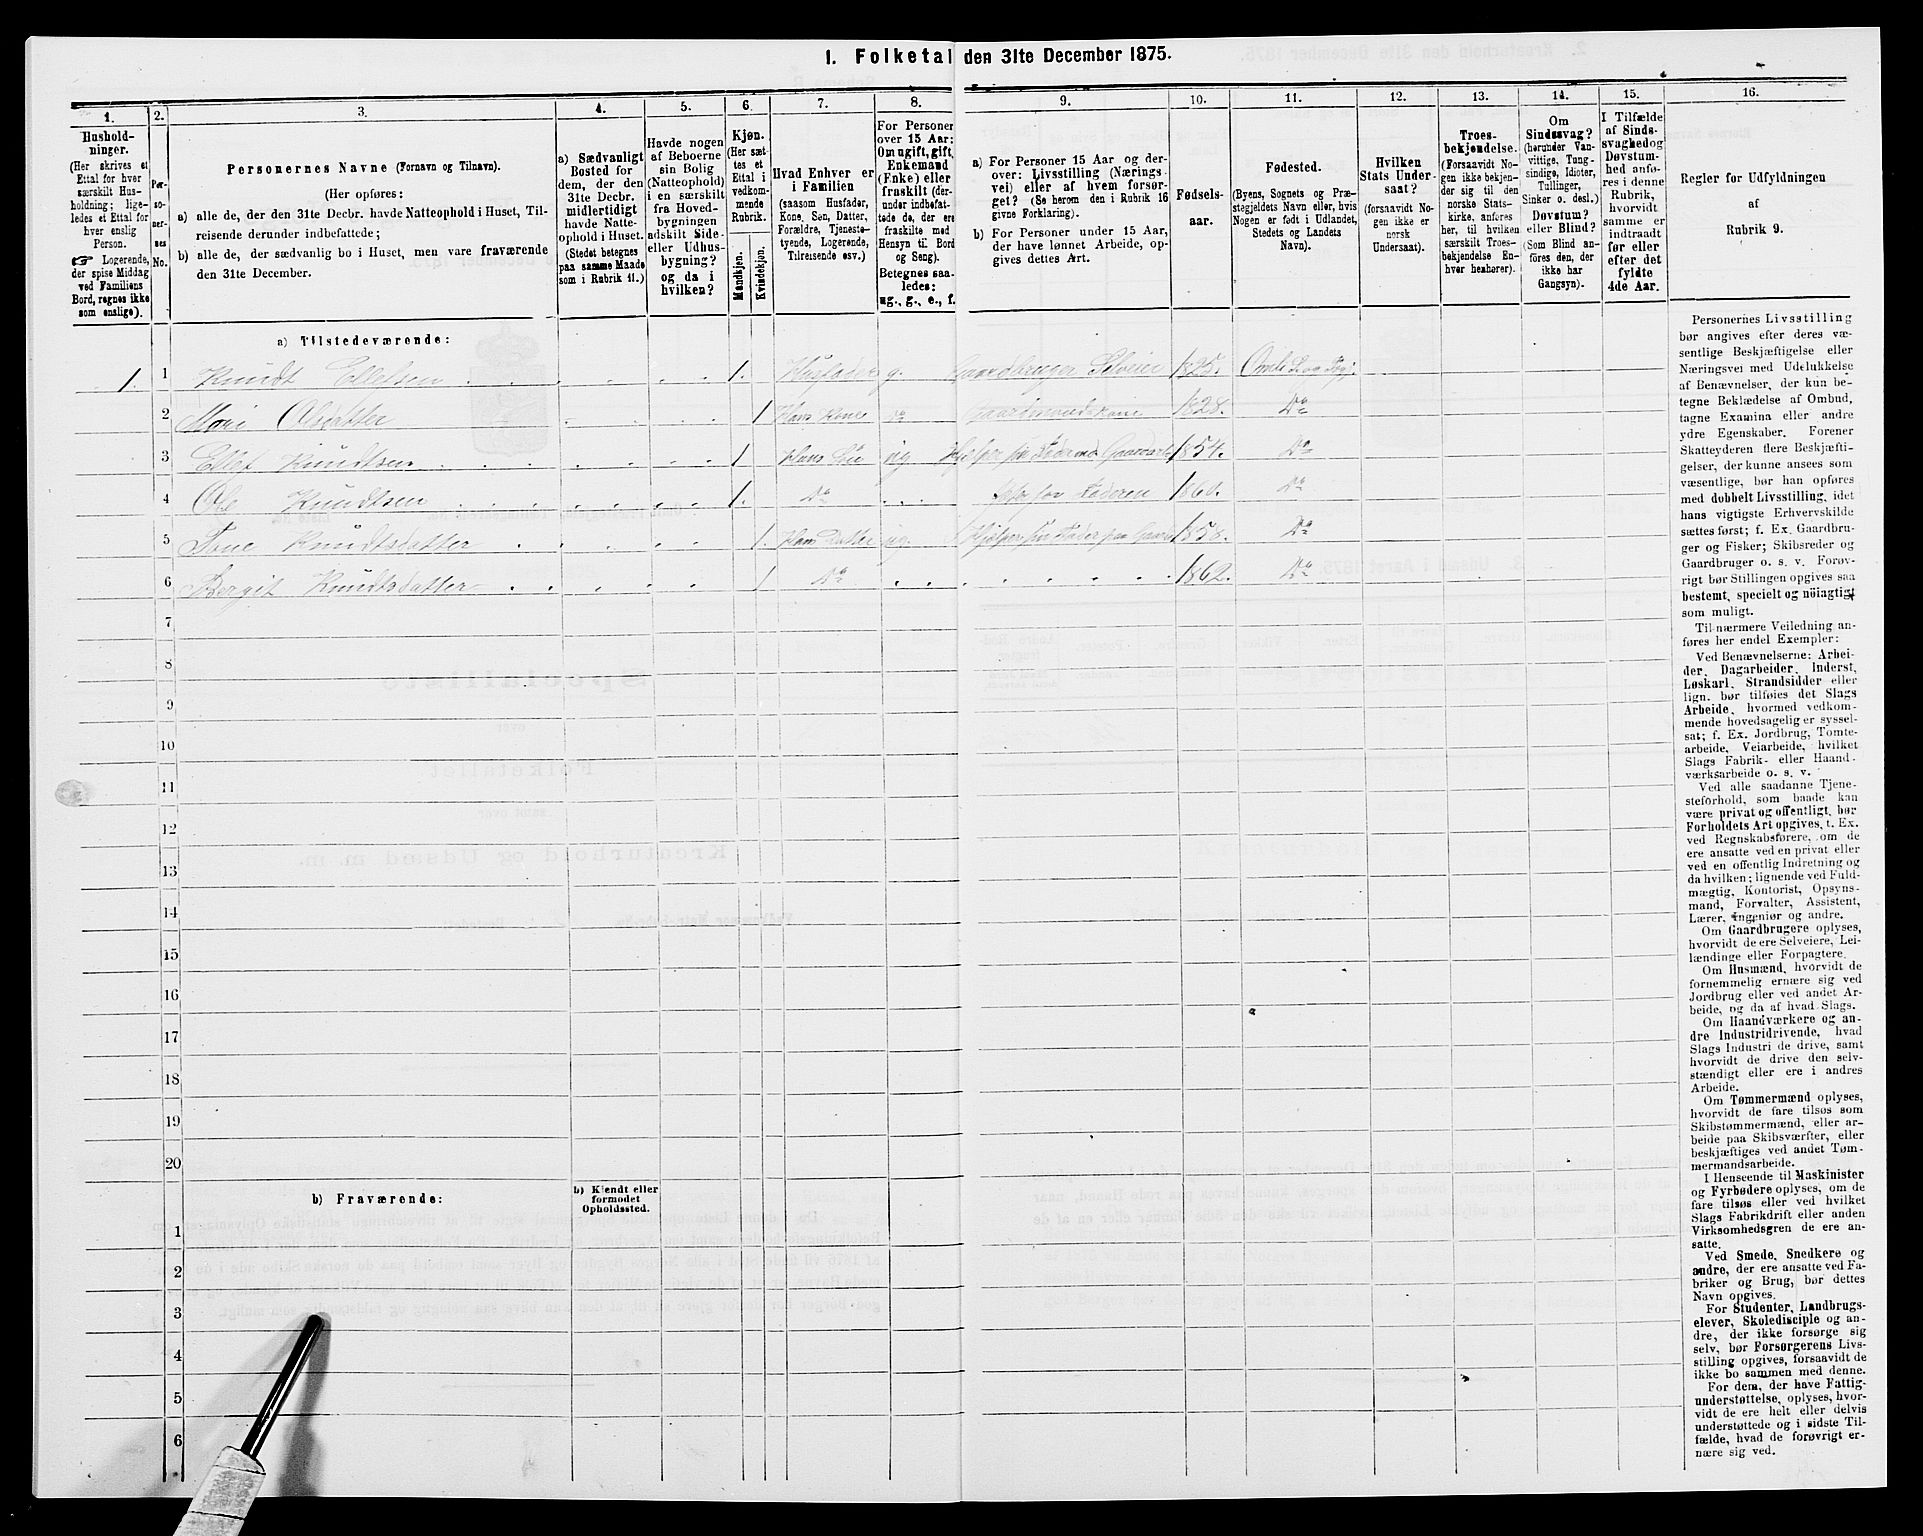 1. Folketal den 31te December 1875.
1.
2.
3.
4.
5.
6.
7.
8.
9.
10.
11.
12.
13.
14.
15.
16.
Hushold-
ninger.
(Her skrives et
Ettal for hver
særskilt Hus-
holdning; lige-
ledes et Ettal for
hver enslig
Person.
☞ Logerende,
der spise Middag
ved Familiens
Bord, regnes ikke
som enslige).
Per-
so-
ner-
nes
No.
Personernes Navne (Fornavn og Tilnavn).
(Her opføres:
a) alle de, der den 31te Decbr. havde Natteophold i Huset, Til-
reisende derunder indbefattede;
b) alle de, der sædvanlig bo i Huset, men vare fraværende
den 31te December.
a) Sædvanligt
Bosted for
dem, der den
31te Decbr.
midlertidigt
havde Natte-
ophold i Huset.
(Stedet betegnes
paa samme Maade
som i Rubrik 11.)
Havde nogen
af Beboerne
sin Bolig
(Natteophold)
i en særskilt
fra Hoved-
bygningen
adskilt Side-
eller Udhus-
bygning?
og da i
hvilken?
Kjøn.
(Her sæt-
tes et
Ettal i
vedkom-
mende
Rubrik.
Mandkjøn.
Kvindekjøn.
Hvad Enhver er
i Familien
(saasom Husfader,
Kone, Søn, Datter,
Forældre, Tjeneste-
tyende, Logerende,
Tilreisende osv.)
For Personer
over 15 Aar:
Om ugift, gift,
Enkemand
(Enke) eller
fraskilt (der-
under indbefat-
tede de, der ere
fraskilte med
Hensyn til Bord
og Seng).
Betegnes saa-
ledes:
ug., g., e., f.
a) For Personer 15 Aar og der-
over: Livsstilling (Nærings-
vei) eller af hvem forsør-
get? (Se herom den i Rubrik 16
givne Forklaring).
b) For Personer under 15 Aar,
der have lønnet Arbeide, op-
gives dettes Art.
Fødsels-
aar.
Fødested.
(Byens, Sognets og Præ-
stegjeldets Navn eller, hvis
Nogen er født i Udlandet,
Stedets og Landets
Navn).
Hvilken
Stats Under-
saat?
(forsaavidt No-
gen ikke er
norsk
Undersaat).
Troes-
bekjendelse.
(Forsaavidt No-
gen ikke bekjen-
der sig til den
norske Stats-
kirke, anføres
her, til hvilken
særskilt Troes-
bekjendelse En-
hver henhører).
Om
Sindssvag?
(herunder Van-
vittige, Tung-
sindige, Idioter,
Tullinger,
Sinker o. desl.)
Døvstum?
eller Blind?
(Som Blind an-
føres den, der
ikke har
Gangsyn).
I Tilfælde
af Sinds-
svaghed og
Døvstum-
hed anfø-
res i denne
Rubrik,
hvorvidt
samme er
indtraadt
før eller
efter det
fyldte
4de Aar.
Regler for Udfyldningen
af
Rubrik 9.
a) Tilstedeværende:
1. 1 Knudt Ellefsen 1. Husfader g. Gaardbruger Selveier 1825.
2 Mari Olsdatter 1 Hans Kone do Gaardmandskone 1828. Do
3 Ellef Knudtsen 1 Hans Søn ug Hjelper sin Fader med 1854. Do
4 Ole Knudtsen 1. Do Faderen 1860. Do
5 Tone Knudtsdatter 1. Hans Datter ug. Hjelper sin Fader paa 1858. Do
6 Bergit Knudtsdatter 1 Do 1862. Do
7
8
9
10
11
12
13
14
15
16
17
18
19
20
b) Fraværende:
b) Kjendt eller
formodet
Opholdssted.
1
2
3
4
5
6
Personernes Livsstilling
bør angives efter deres væ-
sentlige Beskjæftigelse eller
Næringsvei med Udelukkelse
af Benævnelser, der kun be-
tegne Beklædelse af Ombud,
tagne Examina eller andre
ydre Egenskaber. Forener
Skatteyderen flere Beskjæfti-
gelser, der kunne ansees som
væsentlige, bør han opføres
med dobbelt Livsstilling, idet
hans vigtigste Erhvervskilde
sættes først; f. Ex. Gaardbru-
ger og Fisker; Skibsreder og
Gaardbruger o. s. v. Forøv-
rigt bør Stillingen opgives saa
bestemt, specielt og nöiagtigt
som muligt.
Til nærmere Veiledning an-
føres her endel Exempler:
Ved Benævnelserne: Arbei-
der, Dagarbeider, Inderst,
Løskarl, Strandsidder eller
lign. bør tilføies det Slags
Arbeide, hvormed vedkom-
mende hovedsagelig er syssel-
sat; f. Ex. Jordbrug, Tomte-
arbeide, Veiarbeide, hvilket
Slags Fabrik- eller Haand-
værksarbeide o. s. v.
Ved alle saadanne Tjene-
steforhold, som baade kan
være privat og offentligt, bør
Forholdets Art opgives, t. Ex.
ved Regnskabsførere, om de
ere ansatte ved en privat eller
ved en offentlig Indretning og
da hvilken; lignende ved Fuld-
mægtig, Kontorist, Opsyns-
mand, Forvalter, Assistent,
Lærer, Ingeniør og andre.
Om Gaardbrugere oplyses,
hvorvidt de ere Selveiere, Lei-
lændinge eller Forpagtere.
Om Husmænd, hvorvidt de
fornemmelig ernære sig ved
Jordbrug eller ved andet Ar-
beide, og da af hvad Slags.
Om Haandværkere og an-
dre Industridrivende, hvad
Slags Industri de drive, samt
hvorvidt de drive den selv-
stændigt eller ere i andres
Arbeide.
Om Tømmermænd oplyses,
hvorvidt de fare tilsøs som
Skibstømmermænd, eller ar-
beide paa Skibsværfter, eller
beskjæftiges ved andet Tøm-
mermandsarbeide.
I Henseende til Maskinister
og Fyrbødere oplyses, om de
fare tilsøs eller ved hvilket
Slags Fabrikdrift eller anden
Virksomhedsgren de ere an-
satte.
Ved Smede, Snedkere og
andre, der ere ansatte ved Fa-
briker og Brug, bør dettes
Navn opgives.
For Studenter, Landbrugs-
elever, Skoledisciple og an-
dre, der ikke forsørge sig
selv, bør Forsørgerens Livs-
stilling opgives, forsaavidt de
ikke bo sammen med denne.
For dem, der have Fattig-
understøttelse, oplyses, hvor-
vidt de ere helt eller delvis
understøttede og i sidste Til-
fælde, hvad de forøvrigt er-
nære sig ved.